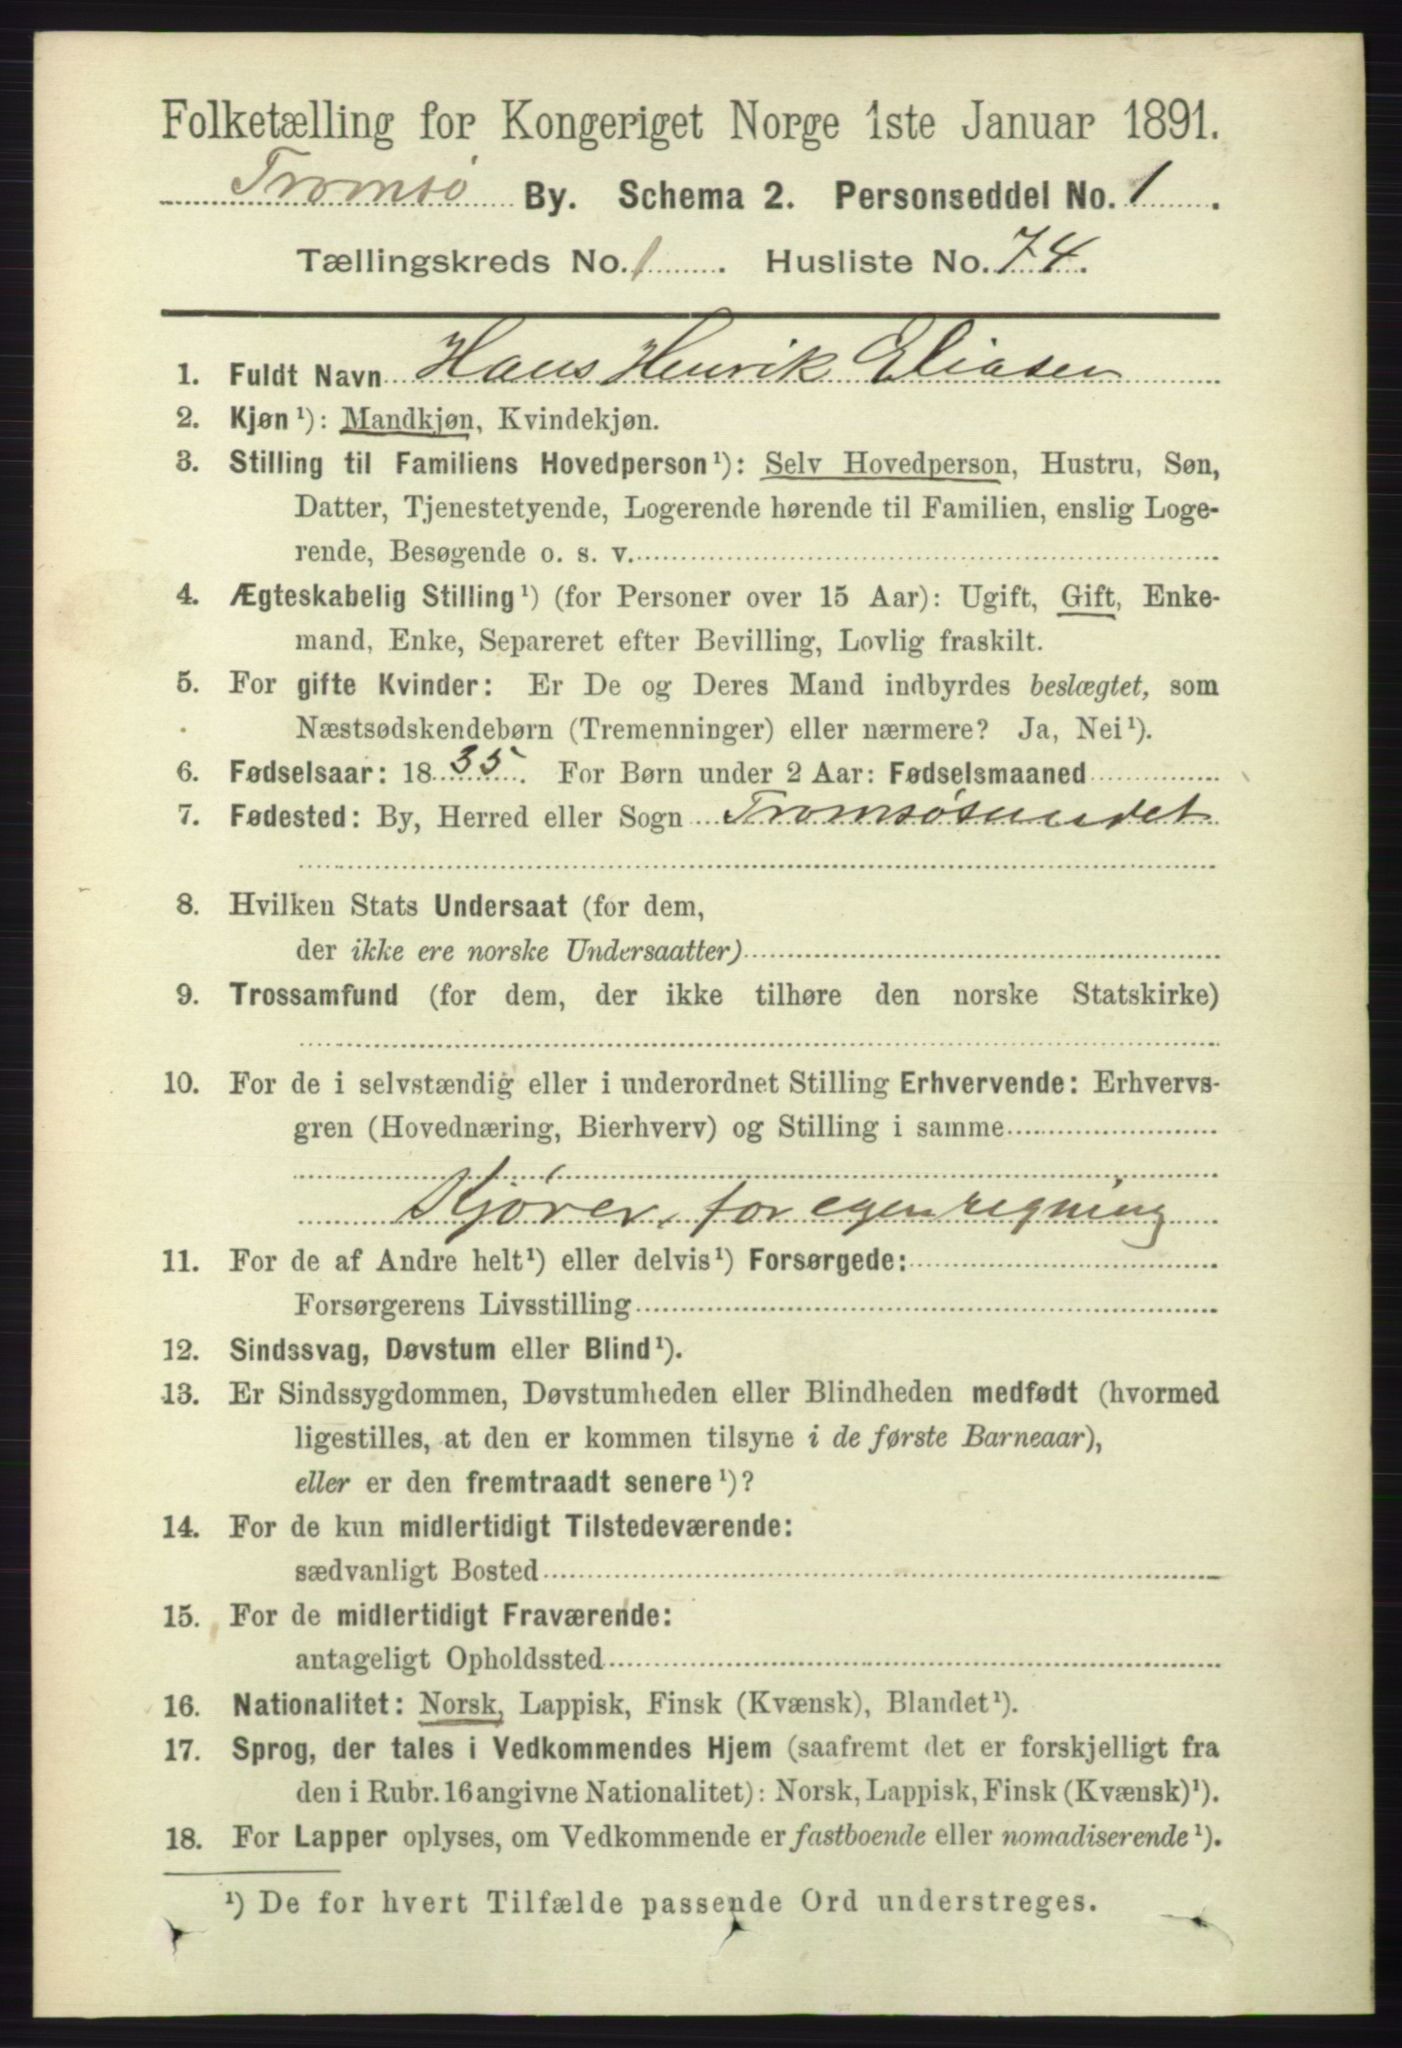 Folketælling for Kongeriget Norge 1ste Januar 1891.
Tromsø By. Schema 2. Personseddel No. 1.
Tællingskreds No. 1. Husliste No. 74.
1. Fuldt Navn Hans Henrik Eliasen
2. Kjøn¹): Mandkjøn, Kvindekjøn.
3. Stilling til Familiens Hovedperson¹): Selv Hovedperson, Hustru, Søn,
Datter, Tjenestetyende, Logerende hørende til Familien, enslig Loge-
rende, Besøgende o. s. v.
4. Ægteskabelig Stilling¹) (for Personer over 15 Aar): Ugift, Gift, Enke-
mand, Enke, Separeret efter Bevilling, Lovlig fraskilt.
5. For gifte Kvinder: Er De og Deres Mand indbyrdes beslægtet, som
Næstsødskendebørn (Tremenninger) eller nærmere? Ja, Nei¹).
6. Fødselsaar: 1835. For Børn under 2 Aar: Fødselsmaaned
7. Fødested: By, Herred eller Sogn Tromsøsundet
8. Hvilken Stats Undersaat (for dem,
der ikke ere norske Undersaatter)
9. Trossamfund (for dem, der ikke tilhøre den norske Statskirke)
10. For de i selvstændig eller i underordnet Stilling Erhvervende: Erhvervs-
gren (Hovednæring, Bierhverv) og Stilling i samme
Kjører, for egen regning
11. For de af Andre helt¹) eller delvis¹) Forsørgede:
Forsørgerens Livsstilling
12. Sindssvag, Døvstum eller Blind¹).
13. Er Sindssygdommen, Døvstumheden eller Blindheden medfødt (hvormed
ligestilles, at den er kommen tilsyne i de første Barneaar),
eller er den fremtraadt senere¹)?
14. For de kun midlertidigt Tilstedeværende:
sædvanligt Bosted
15. For de midlertidigt Fraværende:
antageligt Opholdssted
16. Nationalitet: Norsk, Lappisk, Finsk (Kvænsk), Blandet¹).
17. Sprog, der tales i Vedkommendes Hjem (saafremt det er forskjelligt fra
den i Rubr. 16 angivne Nationalitet): Norsk, Lappisk, Finsk (Kvænsk)¹).
18. For Lapper oplyses, om Vedkommende er fastboende eller nomadiserende¹).
¹) De for hvert Tilfælde passende Ord understreges.